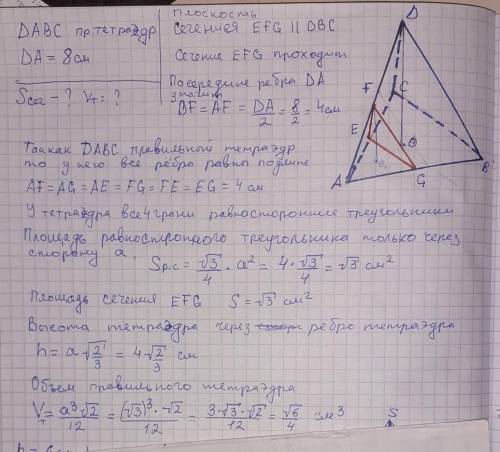 DABC пр. тетраэдр
DA = 8см
Sсеч - ? Vт = ?
Плоскость
сечения EFG || DBC
Сечение EFG проходит
Посередине ребра DA
значит
DF = AF = DA/2 = 8/2 = 4см
D
F
C
E
O
O₁
A
G
B
Так как DABC правильный тетраэдр
то у него все ребра равны по длине
AF = AG = AE = FG = FE = EG = 4 см
У тетраэдра все 4 грани равносторонние треугольники
Площадь равностороннего треугольника только через
сторону a,
Sр.с = √3/4 · a² = 4·√3/4 = √3 см²
Площадь сечения EFG S = √3 см²
Высота тетраэдра через ребро тетраэдра
h = a√2/3 = 4√2/3 см
Объем правильного тетраэдра
Vт = a³√2/12 = (√3)³·√2/12 = 3·√3·√2/12 = √6/4 см³
S